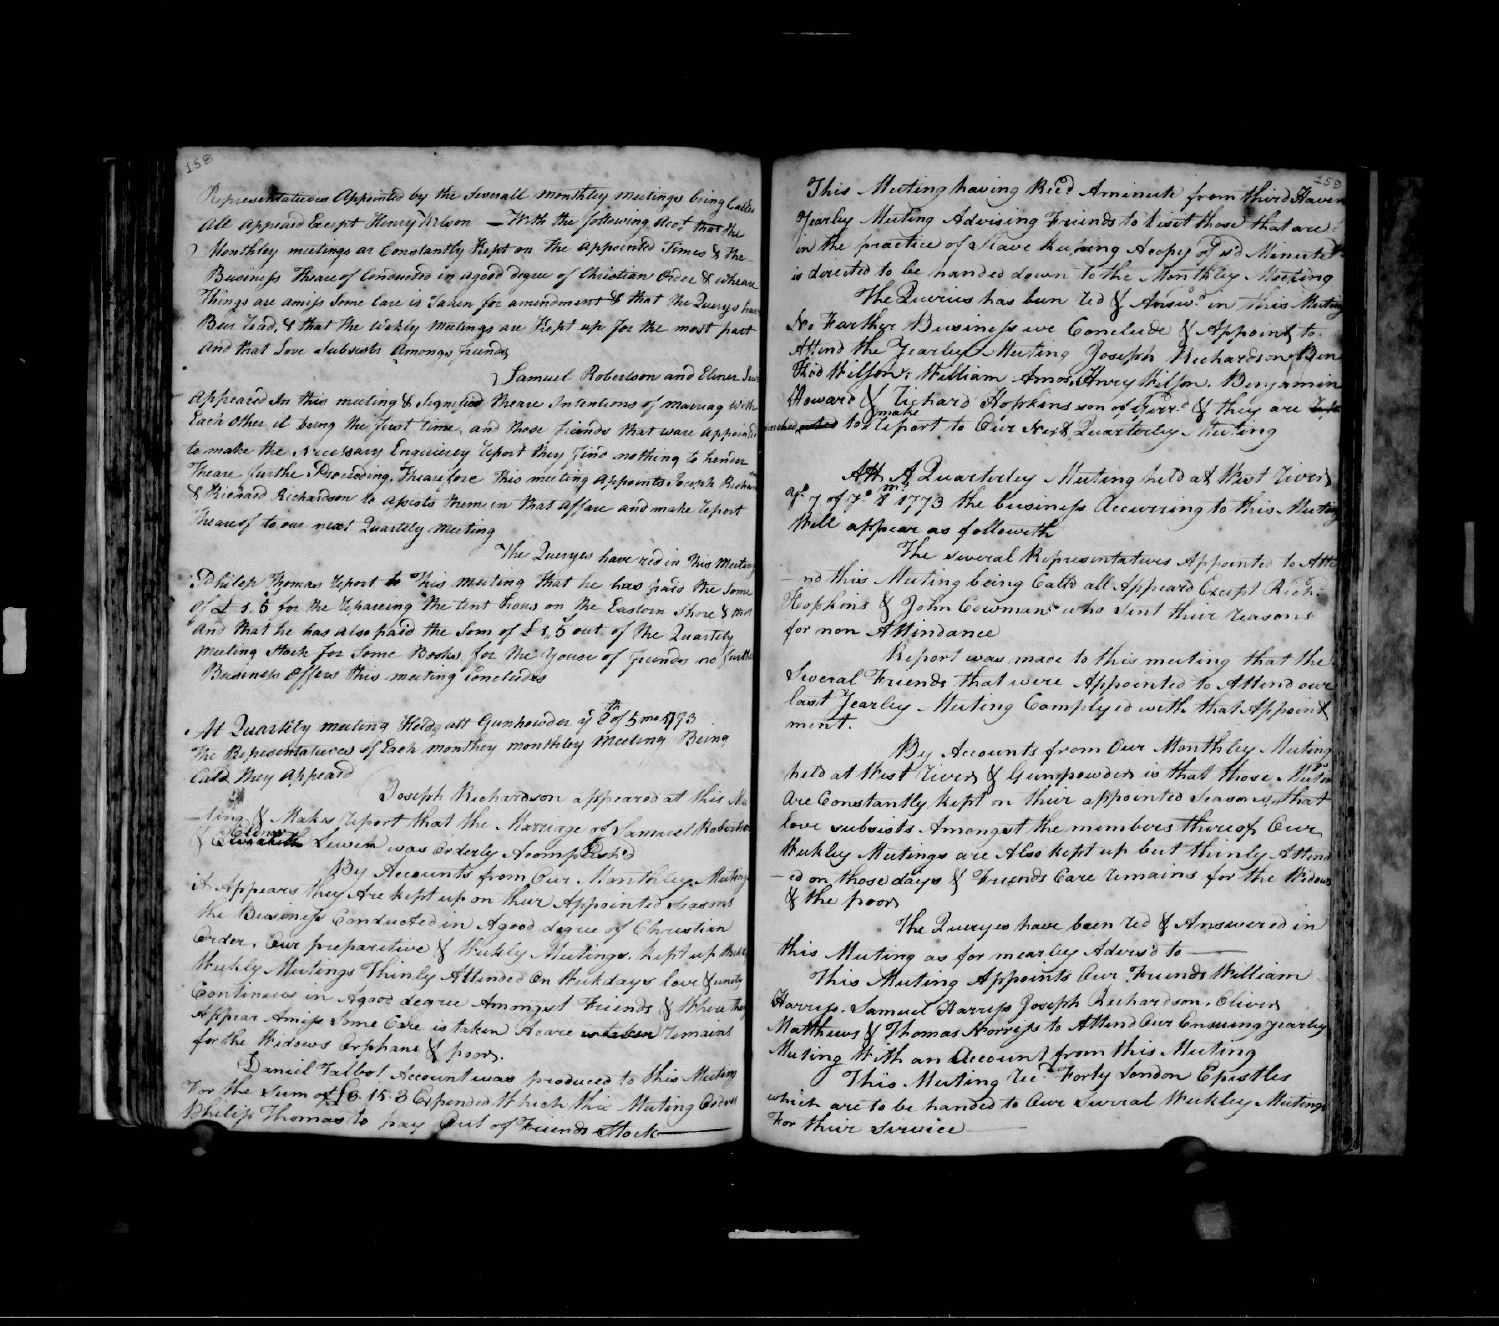 158
Representatives Appointed by the Severall monthley meetings being Called
All Appeard Except Henry Wilson — With the following Acot that the
Monthley meetings ar Constantly Kept on the Appointed Times & the
Business Theare of Conducted in a good degree of Christian Order & wheare
Things are amiss Some Care is Taken for amendment & that the Querys have
Been Read, & that the Wekly Meetings are Kept up for the most part
And that Love Subsists Amongs friends
Samuel Robertson and Elener
Appeared In this meeting & Signified Theare Intentions of marriag with
Each other it being the first time, and those friends that ware appointed
to make the Necessary Enquierey Report they find nothing to hender
Theare furthe Proceeding, Thearefore This meeting Appoints Joseph Richardson
& Richard Richardson to Assists them in that Affare and make Report
Theareof to our next Quartely meeting
The Queryes have red in this Meeting
Philep Thomas Report to This meeting that he has paid the Some
of £ 5. 5 for the Repareing the tent hous on the Eastern Shore &
And that he has also paid the Som of £ 1, 5 out, of the Quartely
meeting Stock for Some Books for the Youse of friends no further
Business Offers this meeting Concludes
At Quartely meeting Held att Gunpowder ye 6th of 5 mo 1773
The Representatives of Each monthey monthley Meeting Being
Cald they Appeard
Joseph Richardson appeared at this Me
-ting & Makes report that the Marriage of Samuel Robertson
& Elener Elizabeth Lewin was orderly Acomplished
By Accounts from Our Monthley Meetings
it Appears they Are kept up on their Appointed Seasons
the Business Conducted in A good degree of Christian
Order, Our preparitive & Weekley Meetings, kept up
Weekly Meetings Thinly Attended on Weekdays love & unity
Continues in A good degree Amongst Friends & Where they
Appear Amiss Some Care is taken A care is taken remains
for the Widows Orphans & poor.
Daniel Talbot Account was produced to this Meeting
For the Sum of £8. 15. 3 Expended Which this Meeting Orders
Philip Thomas to pay Out of Friends Stock
159
This Meeting having Recd A minute from third Haven
Yearley Meeting Advising Friends to Visit those that are
in the practice of Slave Keeping A copy of sd Minute
is directed to be handed down to the Monthley Meeting
The Queries has been red & Answd in this Meeting
No Farther Business we Conclude & Appoint to
Attend the Yearley Meeting Joseph Richardson,
Wilson, William Amos, Henry Wilson, Benjamin
Howard & Richard Hopkins son of Gerrd & they are
to make report to Our Next Quarterley Meeting
Att A Quarterley Meeting held at West River
ye 7 of ye 8 mo 1773 the business Accurring to this Meeting
Will appear as followeth
The several Representatives Appointed to Atte
-nd this Meeting being Calld all Appeard Except Richd
Hopkins & John Cowman who Sent their reasons
for non Attendance
Report was made to this meeting that the
Several Friends that were Appointed to Attend our
last Yearley Meeting Complyed with that Appoint
ment.
By Accounts from Our Monthley Meeting
held at West River & Gunpowder is that those Meetings
Are Constantly kept on their appointed Seasons, that
love subsists Amongst the members thereof Our
Weekley Meetings are Also kept up but thinly Attend
-ed on those days & Friends Care remains for the Widows
& the poor
The Queryes have been red & Answered in
this Meeting as for mearley Advis'd to
This Meeting Appoints Our Friends William
Harriss, Samuel Harriss Joseph Richardson, Oliver
Matthews & Thomas Norriss to Attend Our Ensuing yearley
Meeting With an Account from this Meeting
This Meeting Recd Forty London Epistles
which are to be handed to Our several Weekley Meetings
For their service